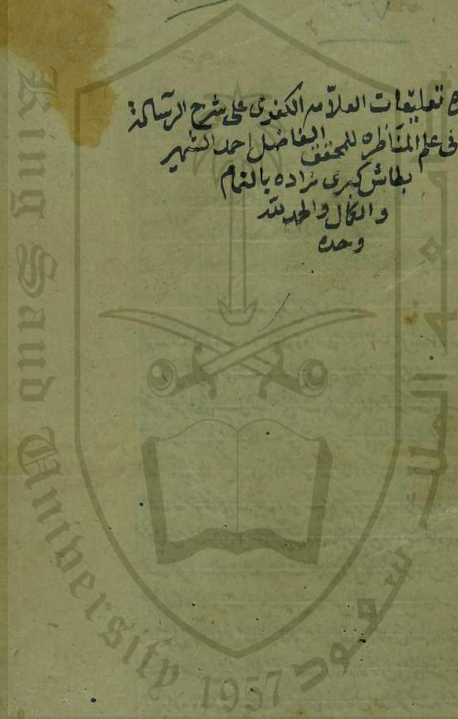 تعليقات العلامه الكفوى على شرح الرسالة
فى علم المناظره للمحقق الفاضل احمد الشهير
بطاش كبرى زاده بالتمام
والكمال والحمد لله
وحده
King Saud University 1957
جامعة الملك سعود